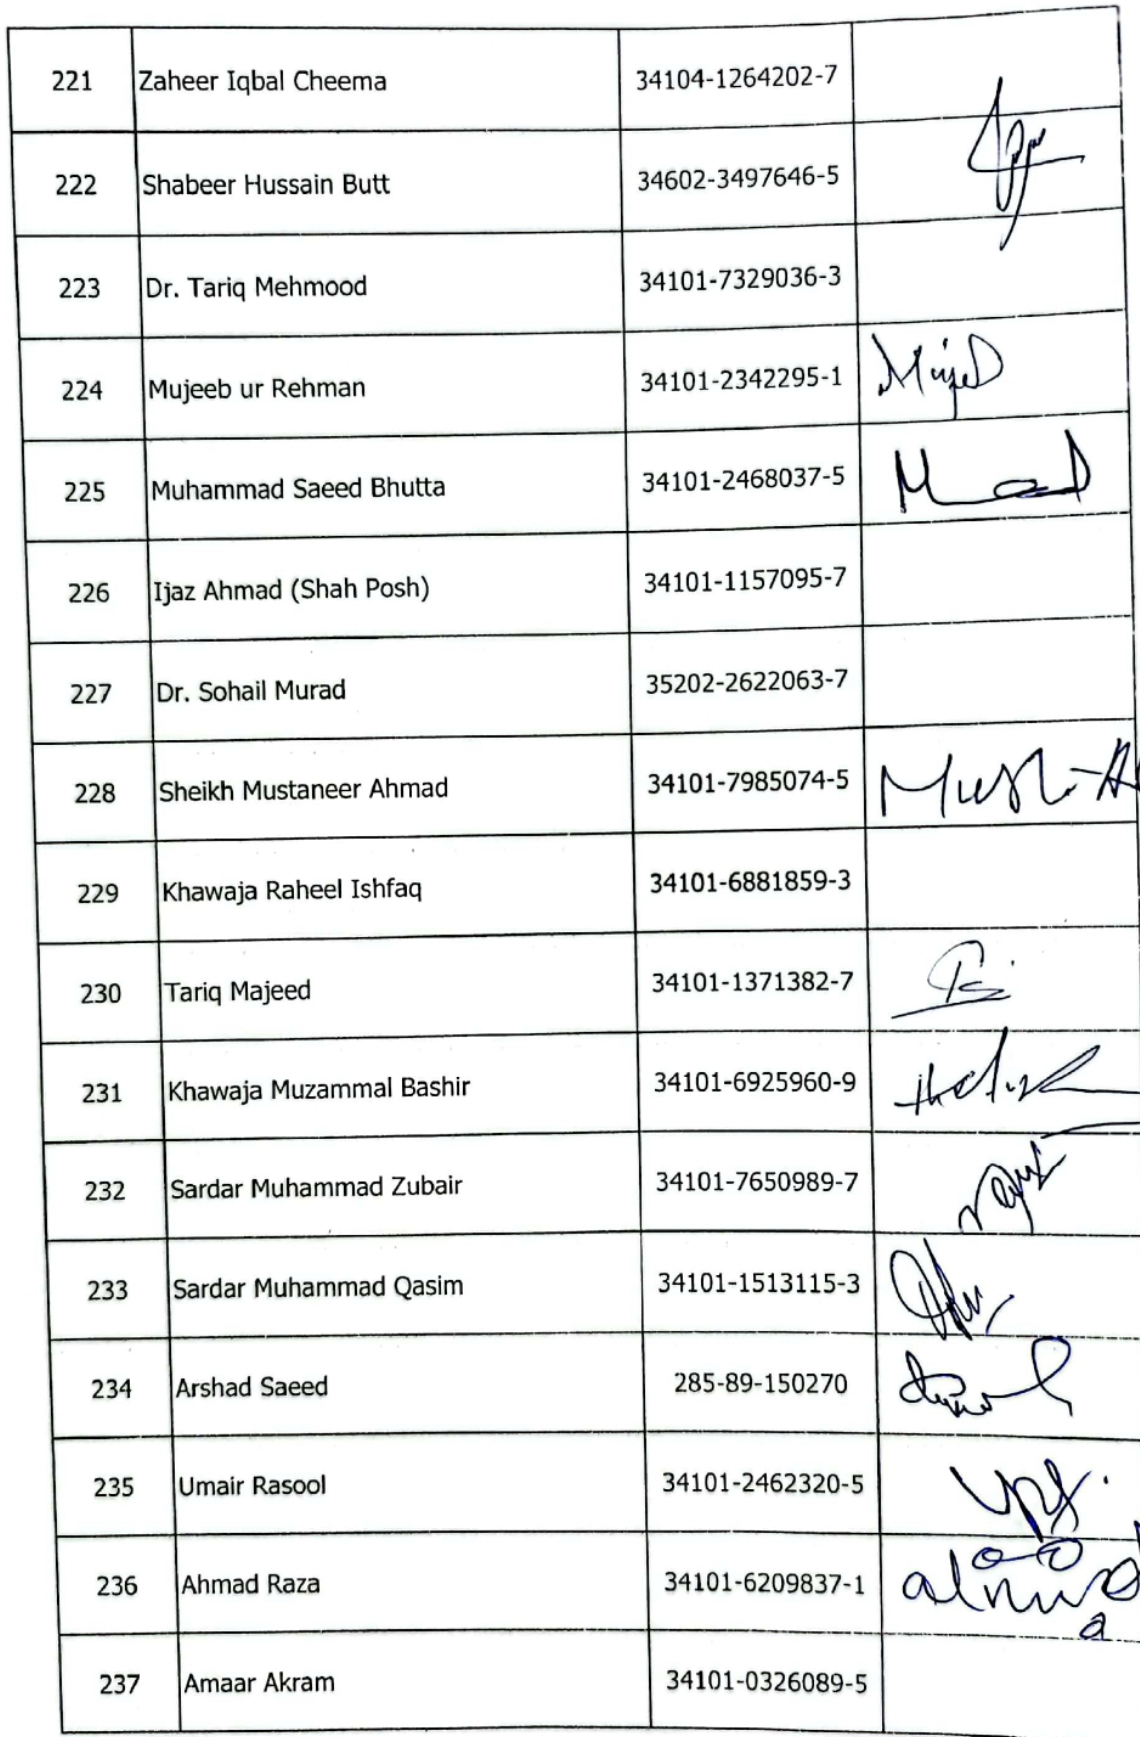 221 Zaheer Iqbal Cheema 34104-1264202-7
222 Shabeer Hussain Butt 34602-3497646-5
223 Dr. Tariq Mehmood 34101-7329036-3
224 Mujeeb ur Rehman 34101-2342295-1
225 Muhammad Saeed Bhutta 34101-2468037-5
226 Ijaz Ahmad (Shah Posh) 34101-1157095-7
227 Dr. Sohail Murad 35202-2622063-7
228 Sheikh Mustaneer Ahmad 34101-7985074-5
229 Khawaja Raheel Ishfaq 34101-6881859-3
230 Tariq Majeed 34101-1371382-7
231 Khawaja Muzammal Bashir 34101-6925960-9
232 Sardar Muhammad Zubair 34101-7650989-7
233 Sardar Muhammad Qasim 34101-1513115-3
234 Arshad Saeed 285-89-150270
235 Umair Rasool 34101-2462320-5
236 Ahmad Raza 34101-6209837-1
237 Amaar Akram 34101-0326089-5